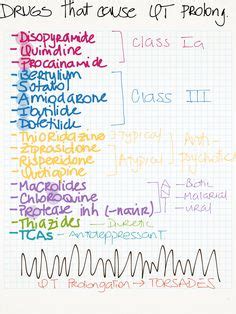 DRUGS that cause QT prolong.
- Disopyramide
- Quinidine
- Procainamide
Class Ia
- Bretylium
- Sotalol
- Amiodarone
- Ibutilide
- Dofetilide
Class III
- Thioridazine
- Ziprasidone
- Risperidone
Typical
Atypical
Anti
psychotics
- Macrolides
- Chloroquine
- Protease inh (-navir)
A
- Biotic
- Malarial
- viral
- Thiazides - Diuretic
- TCAs - Antidepressant
QT Prolongation → TORSADES